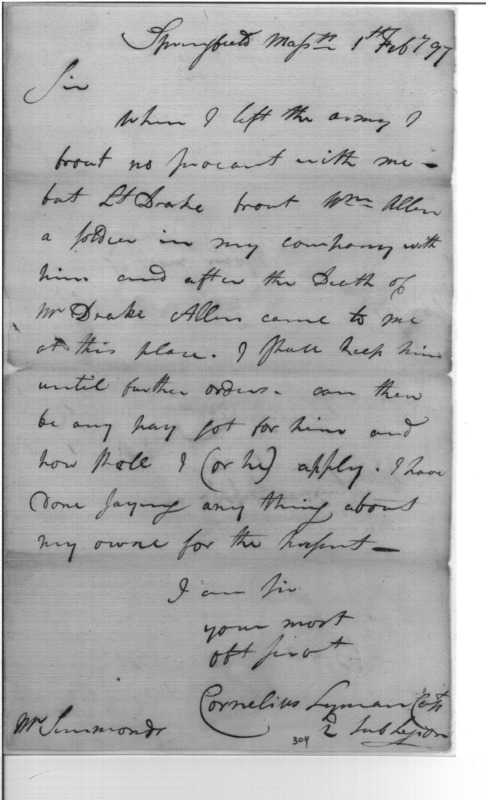 Springfield Massts 1st Feby 97
Sir
When I left the army I
brout no sarvant with me -
but Lt Drake brout Wm Allen
a soldier in my company with
him and after the Death of
Mr Drake Allen came to me
at this place. I shall keep him
until further orders. can then
be any pay got for him and
how shall I (or he) apply. I have
done saying any thing about
my owne for the present -
I am Sir
your most
obt
Cornelius Lyman Capt
2 Sub Legion
Mr Simmonds
304